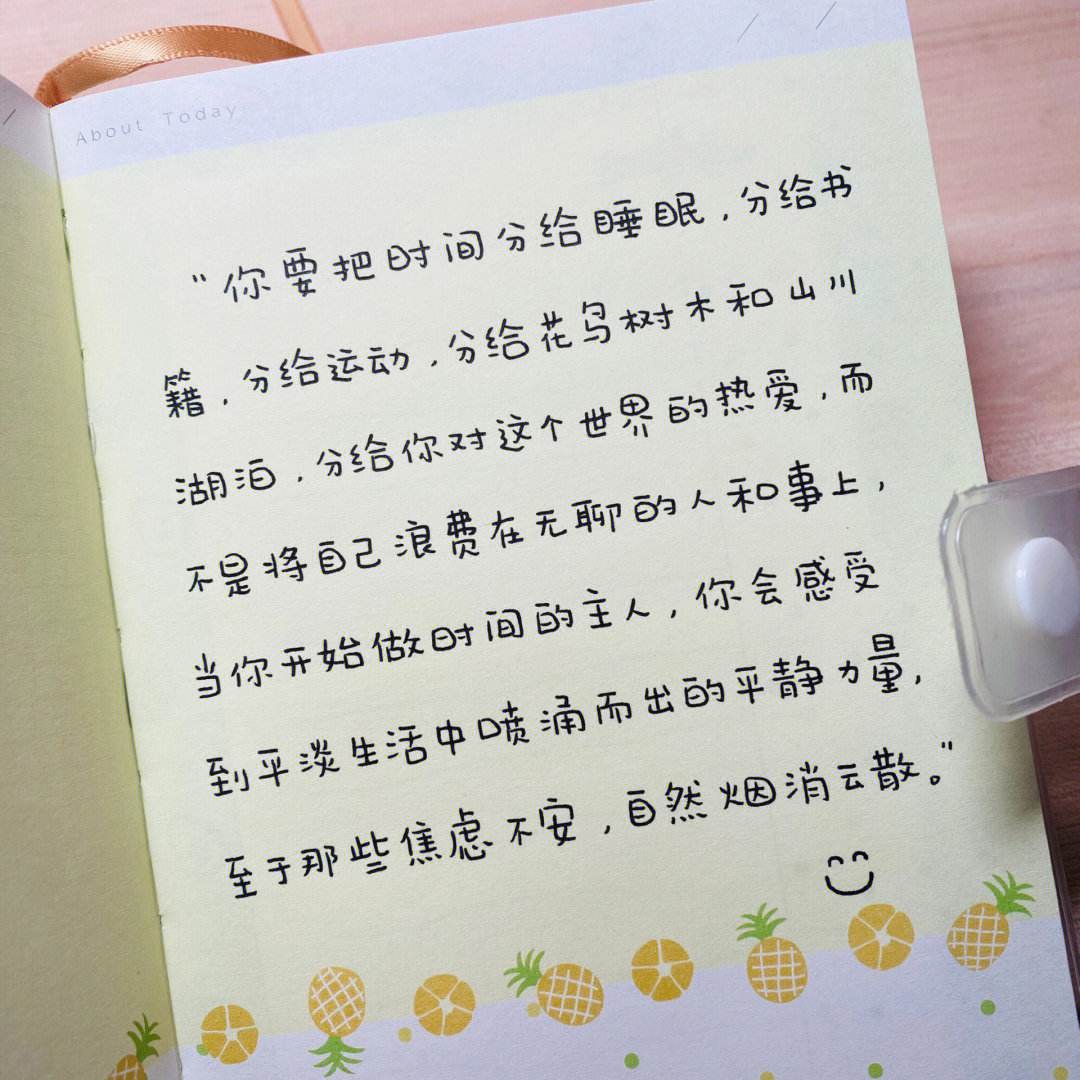 About Today
“你要把时间分给睡眠，分给书
籍，分给运动，分给花鸟树木和山川
湖泊，分给你对这个世界的热爱，而
不是将自己浪费在无聊的人和事上，
当你开始做时间的主人，你会感受
到平淡生活中喷涌而出的平静力量，
至于那些焦虑不安，自然烟消云散。”